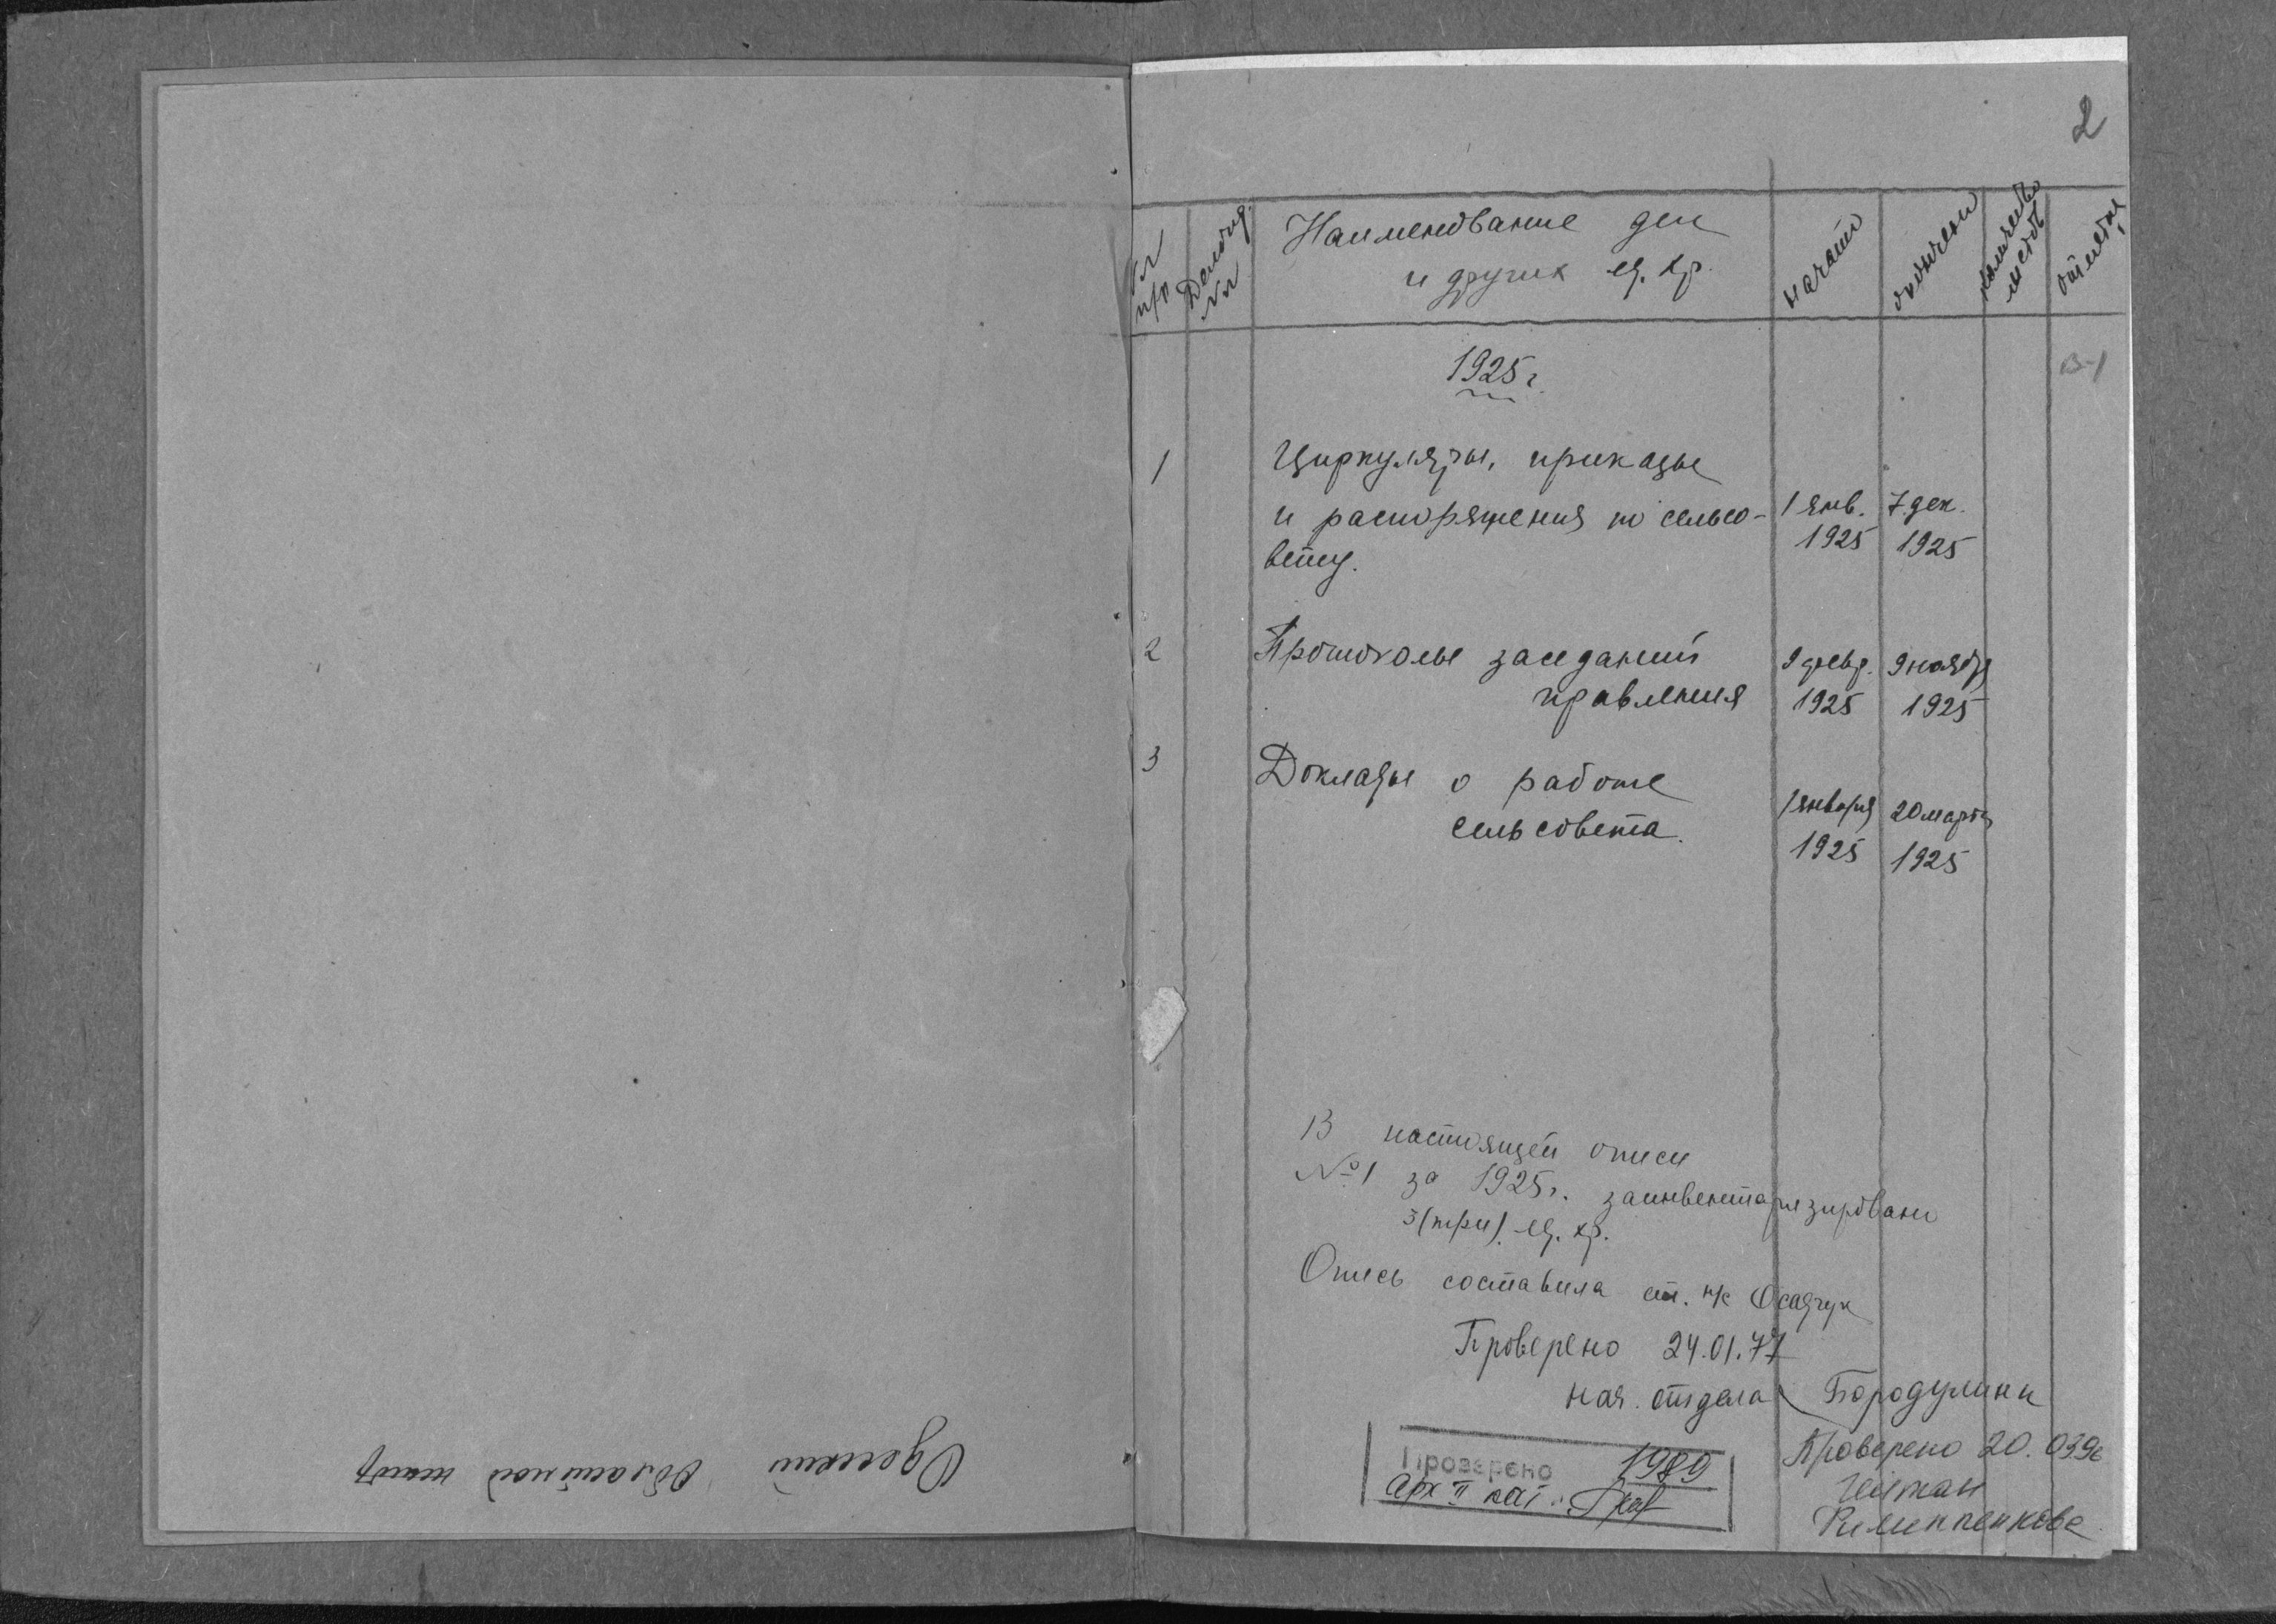 2
№ п/п
Наименование дел
и других ед. хр.
начато
окончен
количество листов
отметка
1925 г.
В-1
1
Циркуляры, приказы
и распоряжения по сельсо-
вету.
1 янв. 1925
7 дек. 1925
2
Протоколы заседаний
правления
9 февр. 1925
9 ноября 1925
3
Доклады о работе
сельсовета.
1 января 1925
20 марта 1925
В настоящей описи
№1 за 1925 г. заинвентаризировани
3 (три) ед. хр.
Опись составила ст. н/с Осадчук
Проверено 24.01.77
нач. отдела
Проверено 1989
Арх II кат.
Проверено 20.03.96
Филиппенкова
Одесский областной